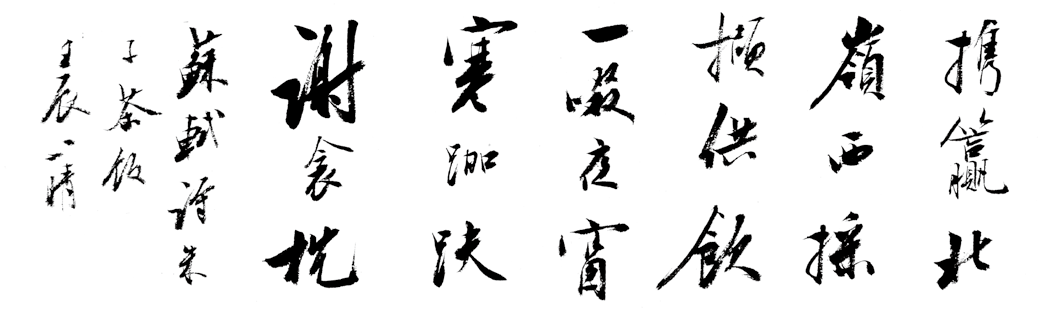 携籯北
嶺西採
擷供飲
一啜夜窗
寒跏趺
謝衾枕
蘇軾詩朱
子茶飯
壬辰一